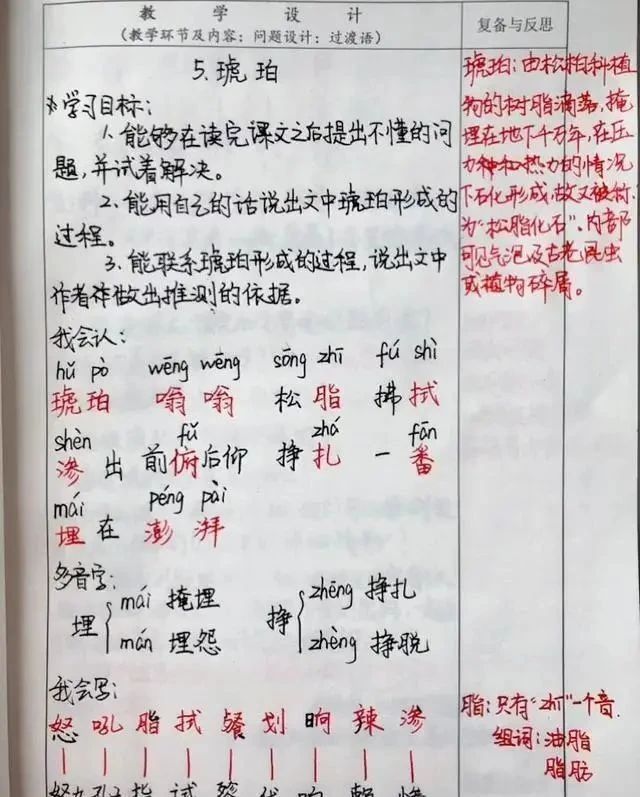 教 学 设 计
（教学环节及内容：问题设计：过渡语）
5.琥珀
※学习目标：
1.能够在读完课文之后提出不懂的问
题，并试着解决。
2.能用自己的话说出文中琥珀形成的
过程。
3.能联系琥珀形成的过程，说出文中
作者做出推测的依据。
我会认：
hǔ pò wēng wēng sōng zhī fú shì
琥珀 嗡嗡 松脂 拂拭
shèn fǔ zhá fān
渗出 前俯后仰 挣扎 一番
mái péng pài
埋在 澎湃
多音字：
埋 mái 掩埋 挣 zhēng 挣扎
mán 埋怨 zhèng 挣脱
我会写：
怒 吼 脂 拭 餐 划 晌 辣 渗
复备与反思
琥珀：由松柏科植
物的树脂滴落，掩
埋在地下千万年，在压
力和热力的情况
下石化形成，故又被称
为“松脂化石”。内部
可见气泡及古老昆虫
或植物碎屑。
脂：只有“zhī”一个音.
组词：油脂
脂肪